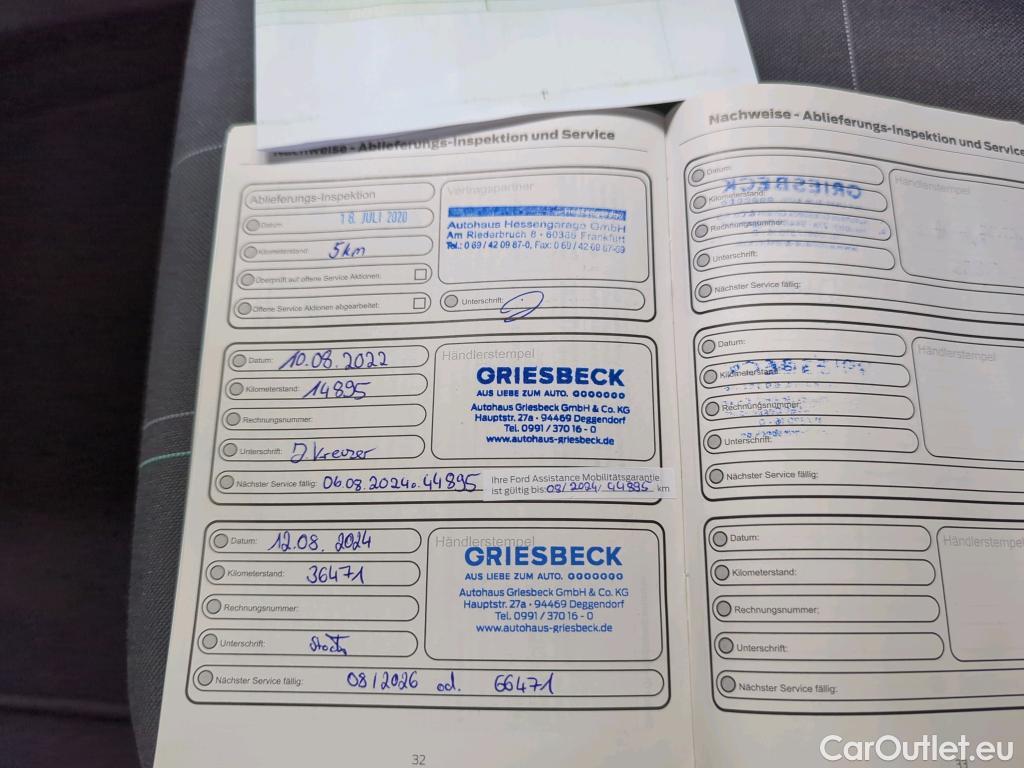 Nachweise - Ablieferungs-Inspektion und Service
Ablieferungs-Inspektion
Datum: 16. JULI 2020
Kilometerstand: 5 km
Überprüft auf offene Service Aktionen:
Offene Service Aktionen abgearbeitet:
Vertragspartner
Autohaus Hessengarage GmbH
Am Riederbruch 8 - 60386 Frankfurt
Unterschrift:
Datum: 10.08.2022
Kilometerstand: 14895
Rechnungsnummer:
Unterschrift:
Nächster Service fällig: 06.08.2024 o. 44895
Händlerstempel
GRIESBECK
AUS LIEBE ZUM AUTO.
Autohaus Griesbeck GmbH & Co. KG
Hauptstr. 27a • 94469 Deggendorf
Tel. 0991 / 370 16 - 0
www.autohaus-griesbeck.de
Ihre Ford Assistance Mobilitätsgarantie
ist gültig bis: 08/2024/ 44895 km
Datum: 12.08.2024
Kilometerstand: 36471
Rechnungsnummer:
Unterschrift:
Nächster Service fällig: 08/2026 od. 66471
Händlerstempel
GRIESBECK
AUS LIEBE ZUM AUTO.
Autohaus Griesbeck GmbH & Co. KG
Hauptstr. 27a • 94469 Deggendorf
Tel. 0991 / 370 16 - 0
www.autohaus-griesbeck.de
32
Nachweise - Ablieferungs-Inspektion und Service
Datum:
Kilometerstand:
Rechnungsnummer:
Unterschrift:
Nächster Service fällig:
Händlerstempel
Datum:
Kilometerstand:
Rechnungsnummer:
Unterschrift:
Nächster Service fällig:
Händlerstempel
Datum:
Kilometerstand:
Rechnungsnummer:
Unterschrift:
Nächster Service fällig:
Händlerstempel
33
CarOutlet.eu